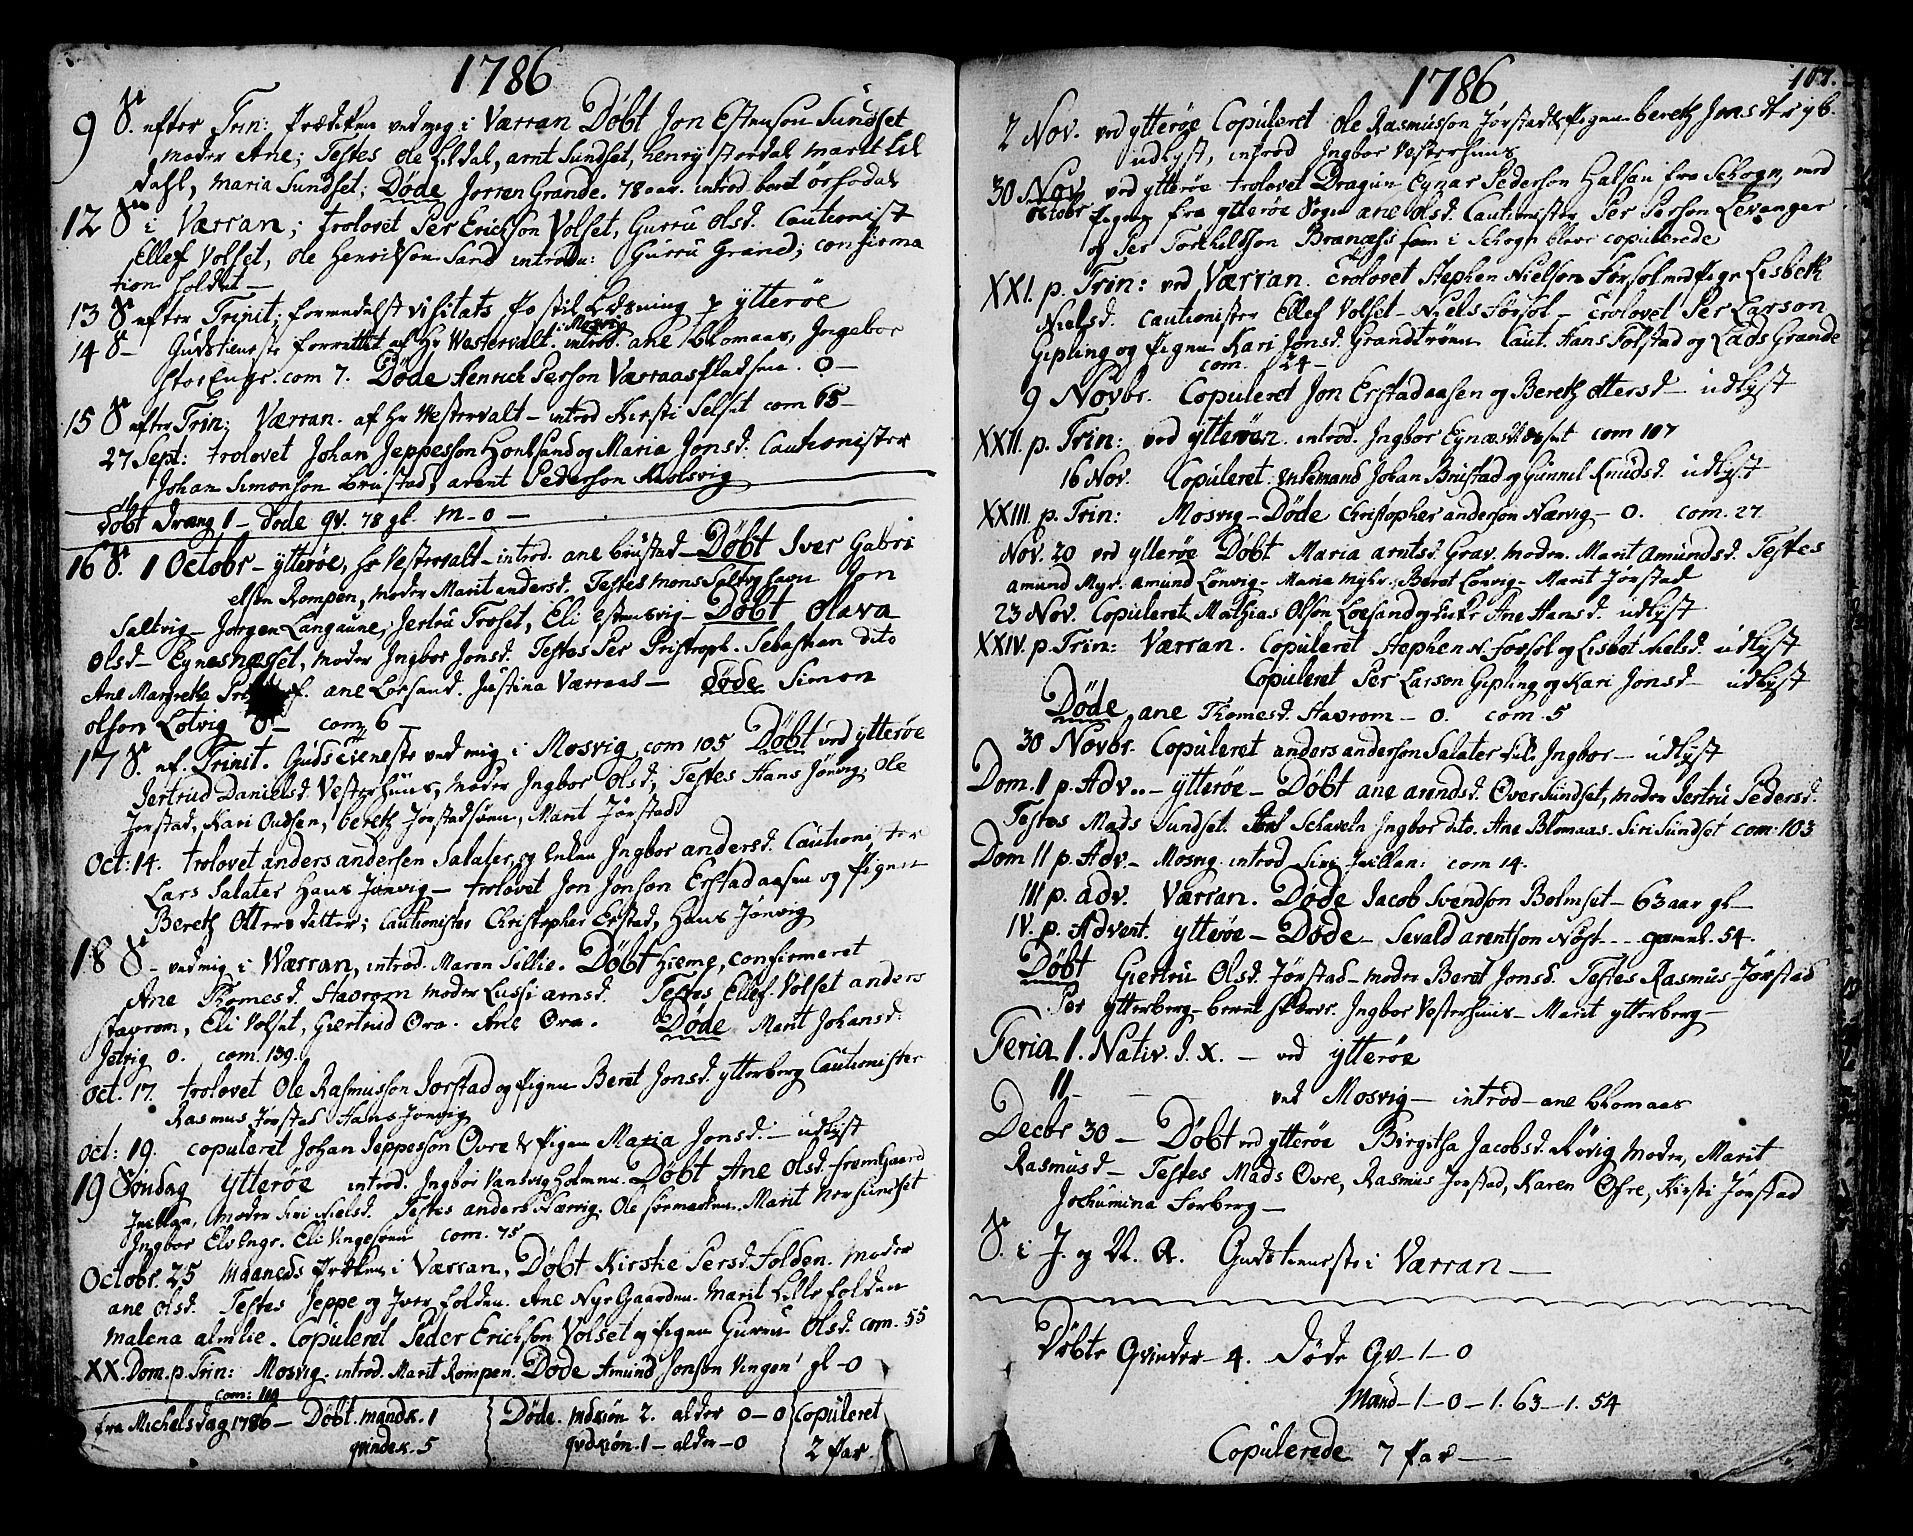 1786
9 S. efter Trin: Prædiken ved mig i Værran Døbt Jon Estenson Sundset
moder Ane; Testes ole Lildal, arnt Sundset, henry stordal marit Lil
dahl, maria Sundset; Døde Jorren Grande. 78 aar. introd berit
12 S. i Værran; trolovet Per Erichson Volset, Gurru olsd. Cautionist
Ellef Volset, ole Henrikson Sand introdu: Gurru Grand; confirma
tion holdet —
13 S efter Trinit; formedelst visitats Postil Læsning p ytterøe
14 S — Gudstieneste forrettet af Hr Westervalt. i Mosvig introd. ane blomaas, Ingebor
StorEngr. com 7. Døde Henrich Person Værraaspladsen. 0 —
15 S efter Trin; Værran. af Hr Westervalt — introd Kirsti Selset com 65 —
27 Sept: trolovet Johan Jeppesson Hontsand og Maria Jonsd. Cautionister
Johan Simonson brustad, arent Pederson
Døbt dreng 1 — døde qv. 78 gl. m — 0 —
16 S. 1 Octobr — ytterøe, hr Vestervalt — introd. ane brustad — Døbt Iver Gabri
elsen Rompen, moder Marit andersd. Testes mons Saltvighavn Jon
Saltvig — Jørgen Langaune, Jertru Troset, Eli Estensvig — Døbt Olava
Olsd — Eynesnesset, moder Ingbor Jonsd. Testes Per Pristroph. Sebastian dito
Ane Margrethe ane Loesand. Justina Værraas — døde Simon
olson Lotvig 0 — com 6 —
17 S. ef. Trinit. Gudstieneste ved mig i Mosvig com 105 Døbt ved ytterøe
Jertrud Danielsd. Vesterhuus, moder Ingbor Olsd; Testes Hans Jønvig, ole
Jørstad, Kari Oudsen, bereth Jørstadsønn, Marit Jørstad
Oct: 14. trolovet anders andersen Salater og Enken Ingbor andersd. Cautionister
Lars Salater Hans Jønvig — trolovet Jon Jonson Erstadaasen og Pigen
Bereth Ottersdatter; Cautionister Christopher Erstad, Hans Jønvig
18 S — ved mig i Værran, introd. Maren Lillie. Døbt hieme, confirmeret
Ane Thomesd. Stavrom moder Lussi arnsd. Testes Ellef Volset anders
Stavrom, Eli Volset, Giertrud Ora. Ane Ora. Døde Marit Johansd:
Jetvig 0. com. 139.
Oct. 17. trolovet Ole Rasmusson Jørstad og Pigen Beret Jonsd. ytterberg Cautionister
Rasmus Jørstad Hans Jønvig
Oct: 19. copuleret Johan Jeppesson Øvre & Pigen Maria Jonsd. — udlyst
19 Søndag ytterøe introd. Ingbor Vandvigholmen. Døbt Ane olsd. fremgaard
Jvillan, moder Siri Nielsd. Testes anders Nærvig. Ole formarken. Marit Norsundset
Ingbor ElvEngr. Eli Vingesønn com. 75
Octobr. 25 Maaneds Prækken i Værran, Døbt Kirstie Persd. Folden. moder
ane olsd. Testes Jeppe og Iver folden. Ane NyeGaarden. Marit Lille folden
malena almlie. Copuleret Peder Erichson Volset og Pigen Gurru Olsd. com. 55
XX. Dom. p. Trin: Mosvig. introd. Marit Rompen. Døde Amund Jonsen Vingen gl — 0
com: 119
fra Michelsdag 1786 — Døbt. mandk. 1
qvindek. 5
Døde. mdkiøn 2. alder 0 — 0
qvdkiøn. 1 — alder — 0
Copuleret
2 Par
1786
107.
2 Nov. ved ytterøe Copuleret Ole Rasmusson Jørstad & Pigen bereth Jonsdtr ytb.
udlyst, introd Ingbor Vesterhuus
30 Nov ved ytterøe trolovet Dragun Eynar Pederson Halsan fra Schogn, med
octobr Pigen fra ytterøe Sogn ane olsd. Cautionister Per Person Levanger
og Per Torchildson Branæss som i Schogn blave copulerede
XXI. p. Trin: ved Værran. trolovet Stephen Nielson Forsol med Pige Lisbeth
Nielsd. cautionister Ellef Volset — Niels Forsol — trolovet Per Larson
Gipling og Pigen Kari Jonsd. Grandtrønn Caut. Hans Folstad og Lads Grande
com. 24 —
9 Novbr. Copuleret Jon Erstadaasen og Bereth ottersd — udlyst
XXII. p. Trin: ved ytterøen introd. Ingbor Eynæsnesset com 107
16 Nov. Copuleret Enkemand Johan Brustad og Gunnil Knudsd. udlyst
XXIII. p. Trin: Mosvig — Døde Christopher anderson Nærvig — 0. com. 27.
Nov. 20 ved ytterøe Døbt Maria arntsd. Grav. moder. Marit amundsd. Testes
amund Myr. amund Lønvig — Maria Myhr. Beret Lønvig — Marit Jørstad
23 Nov. Copuleret Mathias Olson Loesand og Enke Ane Hansd. udlyst
XXIV. p. Trin: Værran. Copuleret Stephen N. Forsol og Lisbet Nielsd. udlyst
Copuleret Per Larson Gipling og Kari Jonsd — udlyst
Døde ane Thomesd. Stavrom — 0. com. 5
30 Novbr. Copuleret anders anderson Salater Ingbor — udlyst
Dom. 1 p. Adv. — ytterøe — Døbt ane arendsd. Over Sundset, moder Jertru Pedersd.
Testes Mads Sundset. Schaveln Ingbor dito. Ane Blomaas. Siri Sundset com: 103
Dom 11 p. Adv — Mosvig. introd Siri Jvillan: com 14.
III p. adv. Værran. Døde Jacob Svendson Bolmset — 63 aar gl —
IV. p. Advent ytterøe — Døde — Sevald arentson Nøst — gammel. 54.
Døbt Giertru Olsd. Jørstad — moder Beret Jonsd. Testes Rasmus Jørstad
Per ytterberg — bernt Ingbor Vesterhuus — Marit ytterberg —
Feria 1. Nativ. J. X. — ved ytterøe
11 — — — ved Mosvig — introd — ane blomaas
Decbr 30 — Døbt ved ytterøe Birgitha Jacobsd. Røvig moder, Marit
Rasmusd — Testes Mads Øvre, Rasmus Jørstad, Karen Øfre, Kirsti Jørstad
Jochumina Forberg —
S. i J. og N. A. Gudstieneste i Værran —
Døbte Qvinder — 4. Døde Qv — 1 — 0
Mand — 1 — 0 — 1. 63 — 1. 54
Copulerede 7 Par —